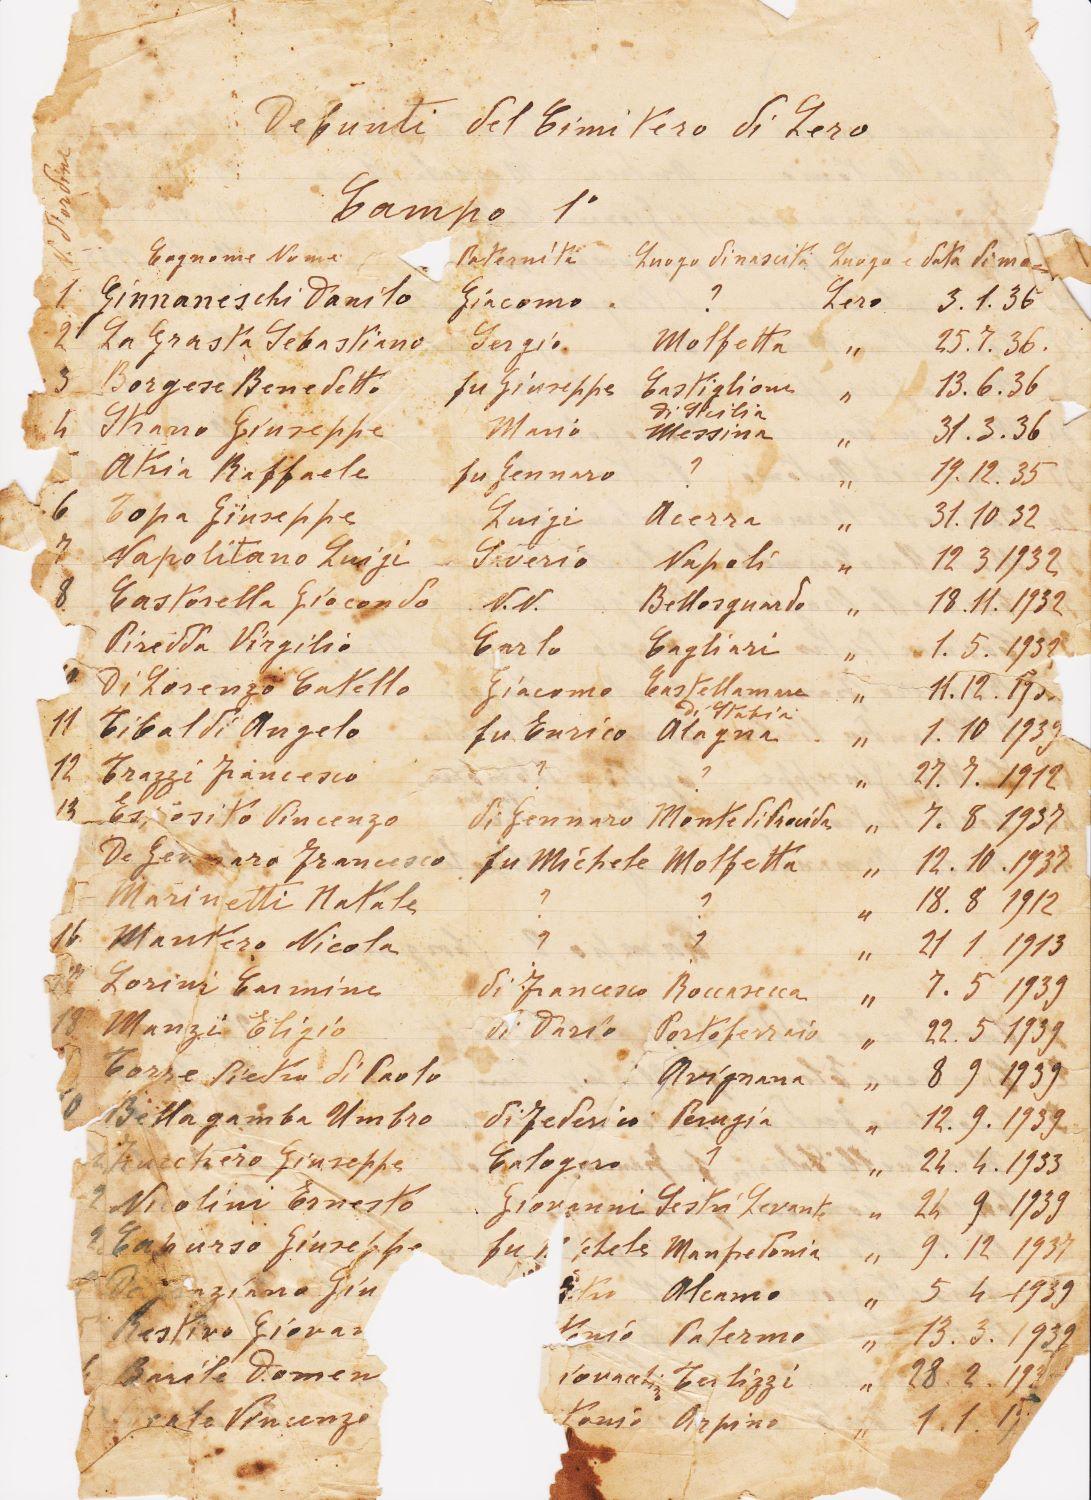 Defunti del Cimitero di Lero
Campo 1°
N. d'ordine Cognome Nome Paternità Luogo di nascita Luogo e data di mo=
1 Ginnaneschi Danilo Giacomo . ? Lero 3.1.36
2 La Grasta Sebastiano Sergio Molfetta " 25.7.36.
3 Borgese Benedetto fu Giuseppe Castiglione di Sicilia " 13.6.36
4 Strano Giuseppe Mario Messina " 31.3.36
Atria Raffaele fu Gennaro ? " 19.12.35
6 Topa Giuseppe Luigi Acerra " 31.10 32
7 Napolitano Luigi Saverio Napoli " 12 3 1932
8 Castorella Giocondo N.N. Bellosguardo " 18.11.1932
Piredda Virgilio Carlo Cagliari " 1.5.1939
Di Lorenzo Catello Giacomo Castellamare di Stabia " 11.12.
11 Tibaldi Angelo fu Enrico Alagna " 1.10 1939
12 Trazzi Francesco ? ? " 27.7.1912
13 Esposito Vincenzo di Gennaro Monte di Procida " 7.8 1937
De Gennaro Francesco fu Michele Molfetta " 12.10.1937
Marinetti Natale ? ? " 18.8 1912
16 Mantero Nicola ? ? " 21 1 1913
17 Lorini Carmine di Francesco Roccasecca " 7.5 1939
18 Manzi Eligio di Dario Portoferraio " 22.5 1939
Torre Pietro di Paolo Avignana " 8 9 1939
Bellagamba Umbro di Federico Perugia " 12.9.1939
2 Zucchero Giuseppe Calogero ? " 24.4.1933
2 Nicolini Ernesto Giovanni Sestri Levante " 24 9 1939
2 Capurso Giuseppe fu Manfredonia " 9.12 1937
Giu Alcamo " 5 4 1939
Restivo Giovan Palermo " 13.3.1939
Barile Domen Terlizzi " 28.2.193
Vincenzo Arpino " 1.1.